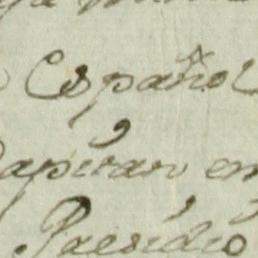 Español
Capitan en
Presidio